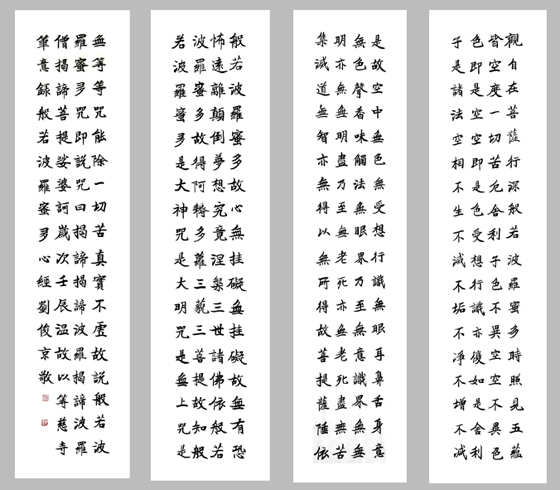 觀自在菩薩行深般若波羅蜜多時照見五蘊
皆空度一切苦厄舍利子色不異空空不異色
色即是空空即是色受想行識亦復如是舍利
子是諸法空相不生不滅不垢不淨不增不減
是故空中無色無受想行識無眼耳鼻舌身意
無色聲香味觸法無眼界乃至無意識界無無
明亦無無明盡乃至無老死亦無老死盡無苦
集滅道無智亦無得以無所得故菩提薩埵依
般若波羅蜜多故心無挂礙無挂礙故無有恐
怖遠離顛倒夢想究竟涅槃三世諸佛依般若
波羅蜜多故得阿耨多羅三藐三菩提故知般
若波羅蜜多是大神咒是大明咒是無上咒是
無等等咒能除一切苦真實不虛故說般若波
羅蜜多咒即說咒曰揭諦揭諦波羅揭諦波羅
僧揭諦菩提娑婆訶歲次壬辰溫故以等慈寺
筆意錄般若波羅蜜多心經劉俊京敬